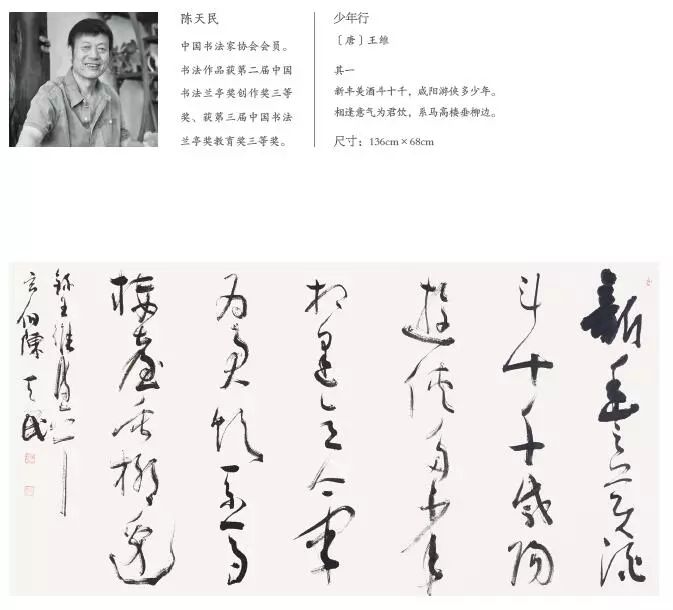 陈天民
中国书法家协会会员。
书法作品获第二届中国
书法兰亭奖创作奖三等
奖、获第三届中国书法
兰亭奖教育奖三等奖。
少年行
〔唐〕王维
其一
新丰美酒斗十千，咸阳游侠多少年。
相逢意气为君饮，系马高楼垂柳边。
尺寸：136cm×68cm
新豐美酒
斗十千咸陽
遊俠多少年
相逢意氣
为君飲系马
樓臺垂柳邊
錄王維詩
陳天民